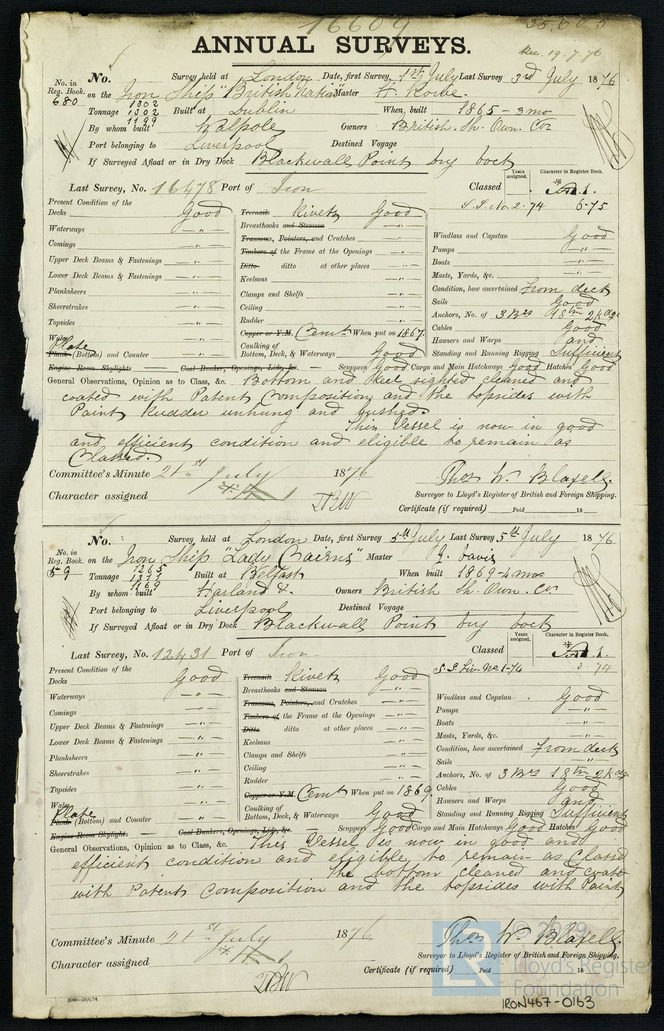 16609
35,605
ANNUAL SURVEYS.
Rec. 19.7.76
No. in Reg. Book. No. Survey held at London Date, first Survey, 1st July Last Survey 3rd July 1876
680 on the Iron Ship "British Nation" Master H. Rowe.
Tonnage 1302 1302 1199 Built at Dublin When built 1865 - 3mo
By whom built Walpole Owners British Sh. Own. Co.
Port belonging to Liverpool Destined Voyage
If Surveyed Afloat or in Dry Dock Blackwall Point dry dock
Years assigned. Character in Register Book.
Last Survey, No. 16478 Port of Lon Classed A.1.
S.S. No.2-74 6-75
Present Condition of the
Decks Good Treenails Rivets Good
Waterways -"- Breasthooks and Stemson -"- Windlass and Capstan Good
Comings -"- Transoms, Pointers, and Crutches -"- Pumps -"-
Upper Deck Beams & Fastenings -"- Timbers of the Frame at the Openings -"- Boats -"-
Lower Deck Beams & Fastenings -"- Ditto ditto at other places -"- Masts, Yards, &c. -"-
Planksheers -"- Keelsons -"- Condition, how ascertained from deck
Sheerstrakes -"- Clamps and Shelfs -"- Sails Good
Topsides -"- Ceiling -"- Anchors, No. of 3 Brs 1 Stm 2 Kdgs
Wales Rudder -"- Cables Good
Plate Copper or Y.M. Cemt When put on 1867 Hawsers and Warps and
Plank (Bottom) and Counter -"- Caulking of Bottom, Deck, & Waterways Good Standing and Running Rigging Sufficient
Engine Room Skylights Coal Bunker, Openings, Lids, &c. Scuppers Good Cargo and Main Hatchways Good Hatches Good
General Observations, Opinion as to Class, &c. Bottom and Keel sighted cleaned and
coated with Patent Composition and the topsides with
Paint Rudder unhung and bushed.
This Vessel is now in good
and efficient condition and eligible to remain as
Classed.
Committee's Minute 21st July 1876 Thos W. Blaxell.
Character assigned A 1 Surveyor to Lloyd's Register of British and Foreign Shipping.
Certificate (if required) Paid 18
No. in Reg. Book. No. Survey held at London Date, first Survey 5th July Last Survey 5th July 1876
59 on the Iron Ship "Lady Cairns" Master J. Davis
Tonnage 1265 1311 1169 Built at Belfast When built 1869-4 mos
By whom built Harland &. Owners British Sh. Own. Co.
Port belonging to Liverpool Destined Voyage
If Surveyed Afloat or in Dry Dock Blackwall Point dry dock
Years assigned. Character in Register Book.
Last Survey, No. 12431 Port of Lon Classed A.1.
S.S Liv. No.1-74 3-74
Present Condition of the
Decks Good Treenails Rivets Good
Waterways -"- Breasthooks and Stemson -"- Windlass and Capstan Good
Comings -"- Transoms, Pointers, and Crutches -"- Pumps -"-
Upper Deck Beams & Fastenings -"- Timbers of the Frame at the Openings -"- Boats -"-
Lower Deck Beams & Fastenings -"- Ditto ditto at other places -"- Masts, Yards, &c. -"-
Planksheers -"- Keelsons -"- Condition, how ascertained from deck
Sheerstrakes -"- Clamps and Shelfs -"- Sails -"-
Topsides -"- Ceiling -"- Anchors, No. of 3 Brs 1 Stm 2 Kdgs
Wales Rudder -"- Cables Good
Plate Copper or Y.M Cemt When put on 1869. Hawsers and Warps and
Plank (Bottom) and Counter -"- Caulking of Bottom, Deck, & Waterways Good Standing and Running Rigging Sufficient
Engine Room Skylight. Coal Bunkers, Openings, Lids, &c. Scuppers Good Cargo and Main Hatchways Good Hatches Good
General Observations, Opinion as to Class, &c. This Vessel is now in good and
efficient condition and eligible to remain as Classed
the bottom cleaned and coated
with Patent Composition and the topsides with Paint
Committee's Minute 21st July 1876 Thos W. Blaxell.
Character assigned A 1 Surveyor to Lloyd's Register of British and Foreign Shipping.
Certificate (if required) Paid 18
© 2019 Lloyd's Register Foundation
LR
IRON467-0163